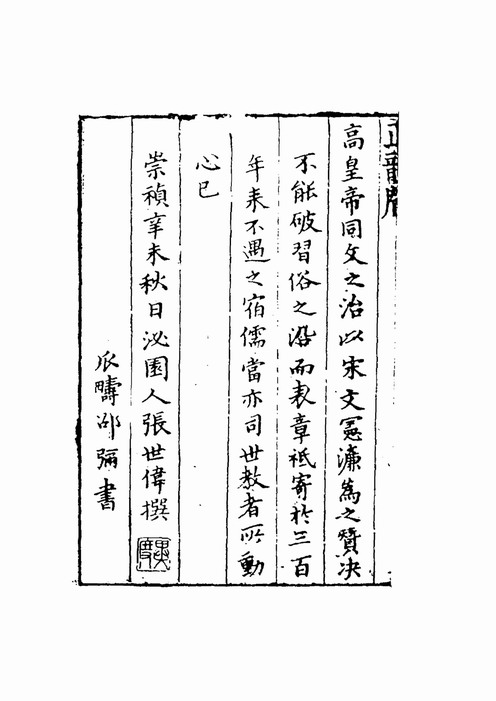 高皇帝同文之治以宋文憲濂為之贊决
不能破習俗之沿而表章祗寄於三百
年來不遇之宿儒當亦司世教者所動
心已
崇禎辛未秋日泌園人張世偉撰
瓜疇邵彌書